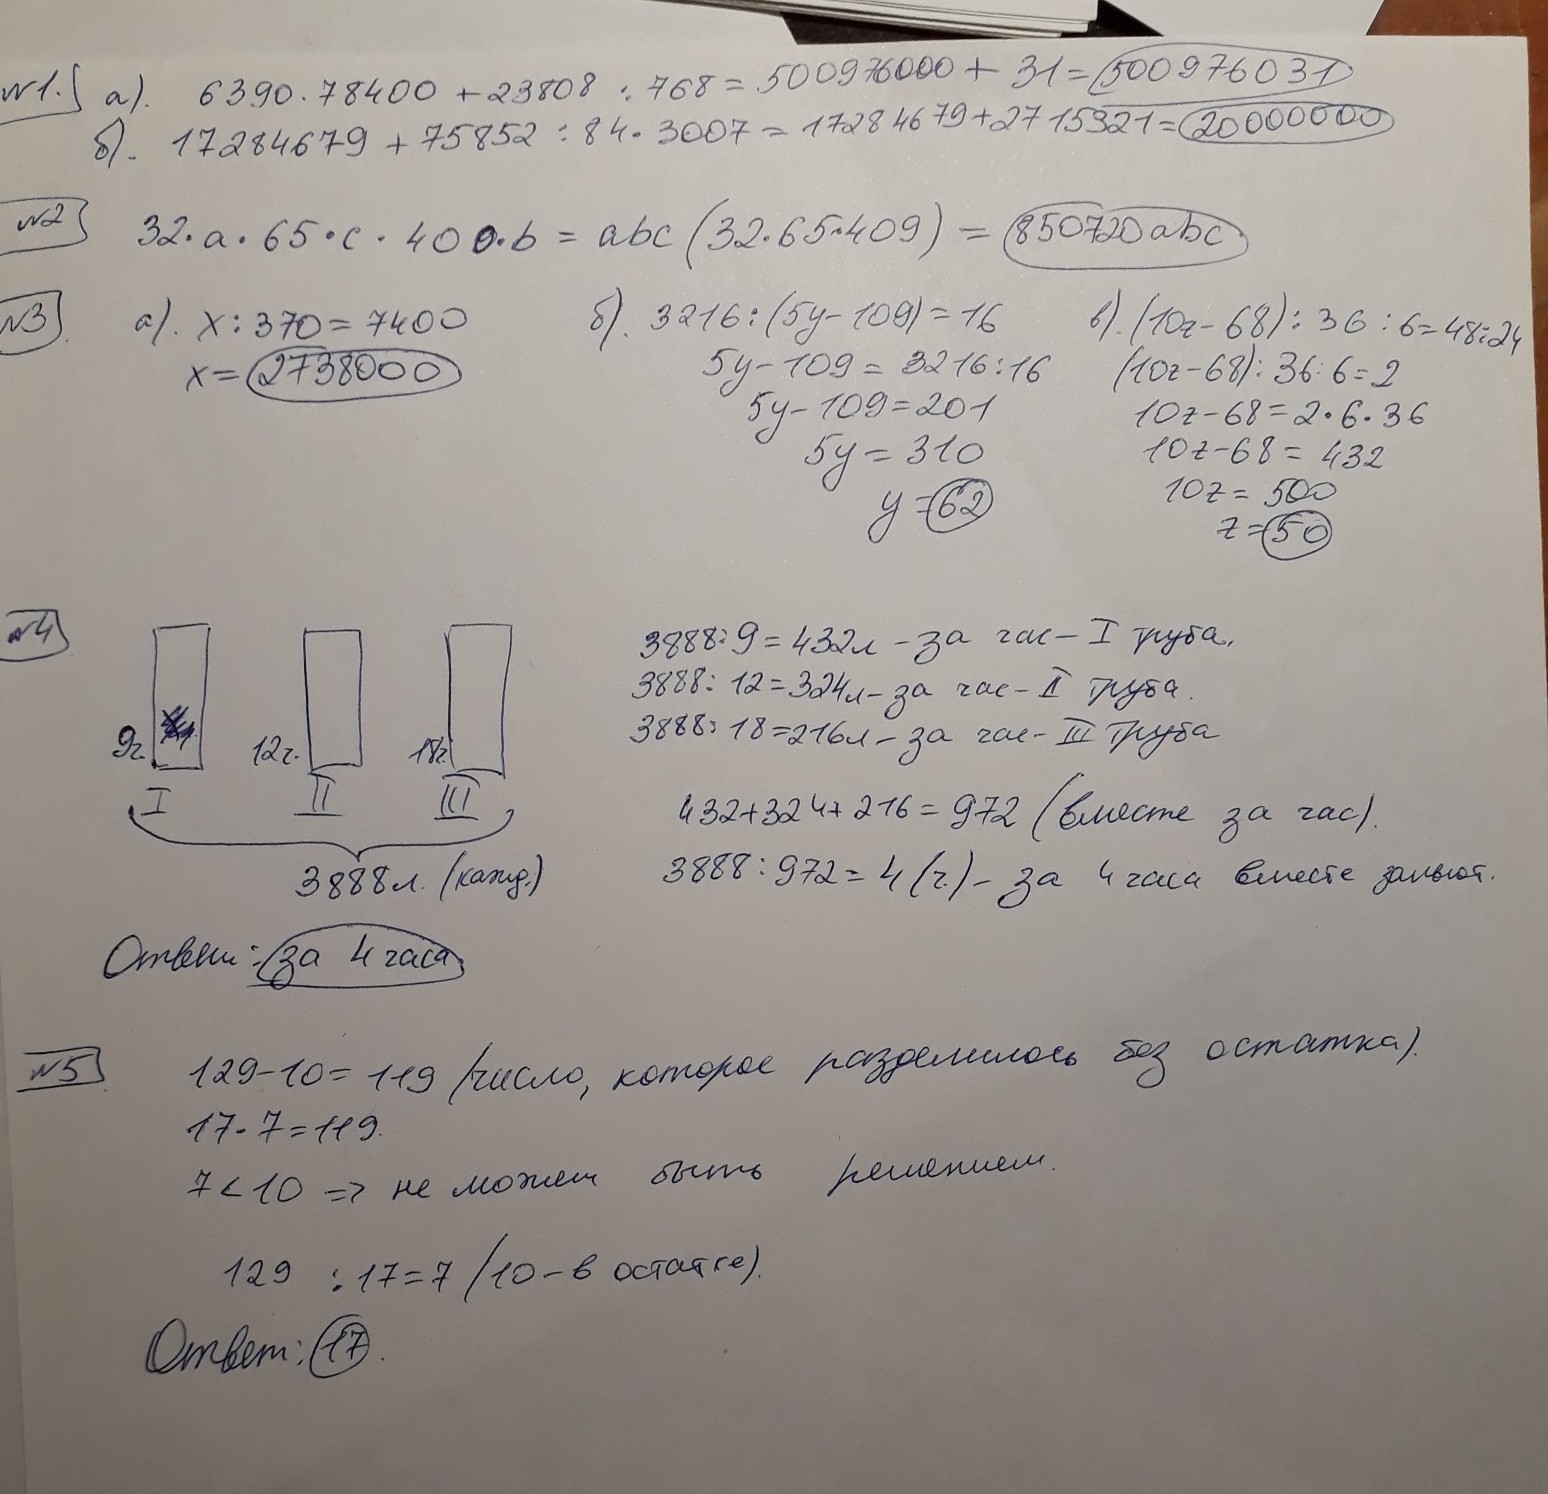 №1. а). 6390·78400+23808:768=500976000+31=500976031
б). 17284679+75852:84·3007=17284679+2715321=20000000
№2 32·a·65·c·409·b=abc(32·65·409)=850720abc
№3 а). x:370=7400
x=2738000
б). 3216:(5y-109)=16
5y-109=3216:16
5y-109=201
5y=310
y=62
в). (10z-68):36:6=48:24
(10z-68):36:6=2
10z-68=2·6·36
10z-68=432
10z=500
z=50
№4
9ч. 12ч. 18ч.
I II III
3888л. (кажд.)
3888:9=432л-за час-I труба.
3888:12=324л-за час-II труба.
3888:18=216л-за час-III труба
432+324+216=972 (вместе за час).
3888:972=4(ч.)-за 4 часа вместе зальют.
Ответ: за 4 часа
№5 129-10=119 (число, которое разделилось без остатка).
17·7=119.
7<10 => не может быть решением.
129 :17=7 (10-в остатке).
Ответ: 17.